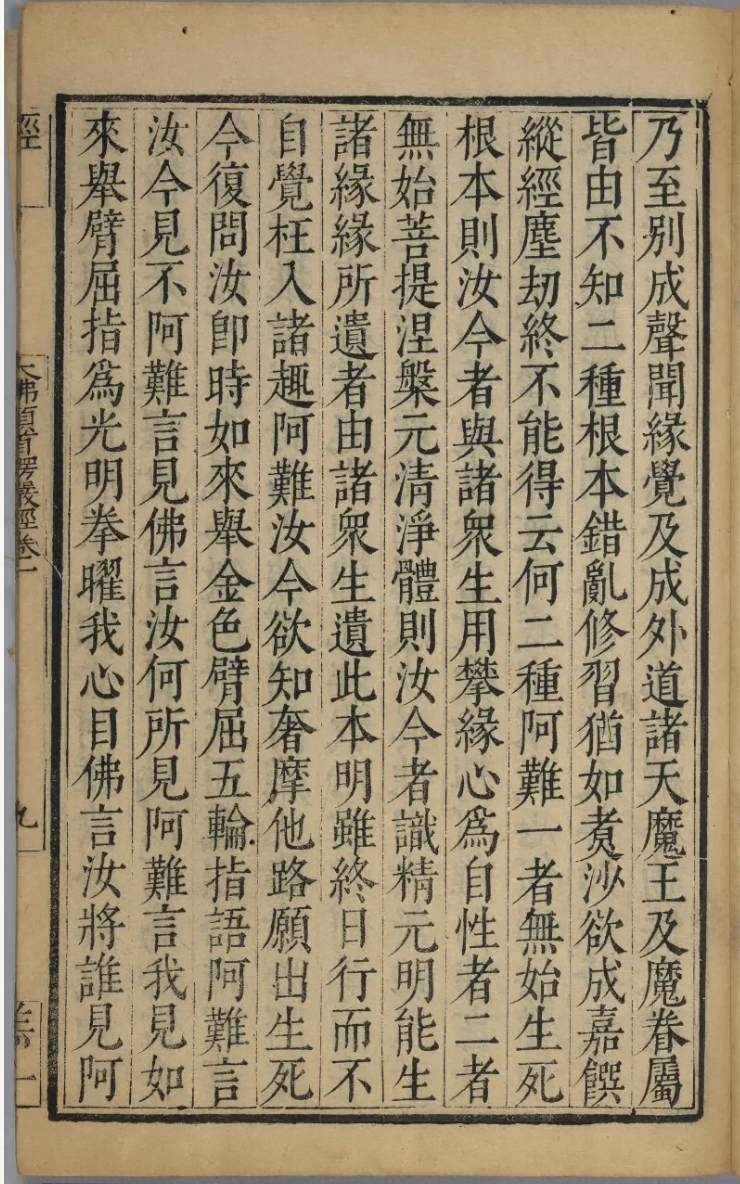 乃至别成聲聞緣覺及成外道諸天魔王及魔眷屬
皆由不知二種根本錯亂修習猶如煑沙欲成嘉饌
縱經塵劫終不能得云何二種阿難一者無始生死
根本則汝今者與諸衆生用攀緣心爲自性者二者
無始菩提涅槃元清淨體則汝今者識精元明能生
諸緣緣所遺者由諸衆生遺此本明雖終日行而不
自覺枉入諸趣阿難汝今欲知奢摩他路願出生死
今復問汝卽時如來舉金色臂屈五輪指語阿難言
汝今見不阿難言見佛言汝何所見阿難言我見如
來舉臂屈指爲光明拳曜我心目佛言汝將誰見阿
經
大佛頂首楞嚴經卷一
九